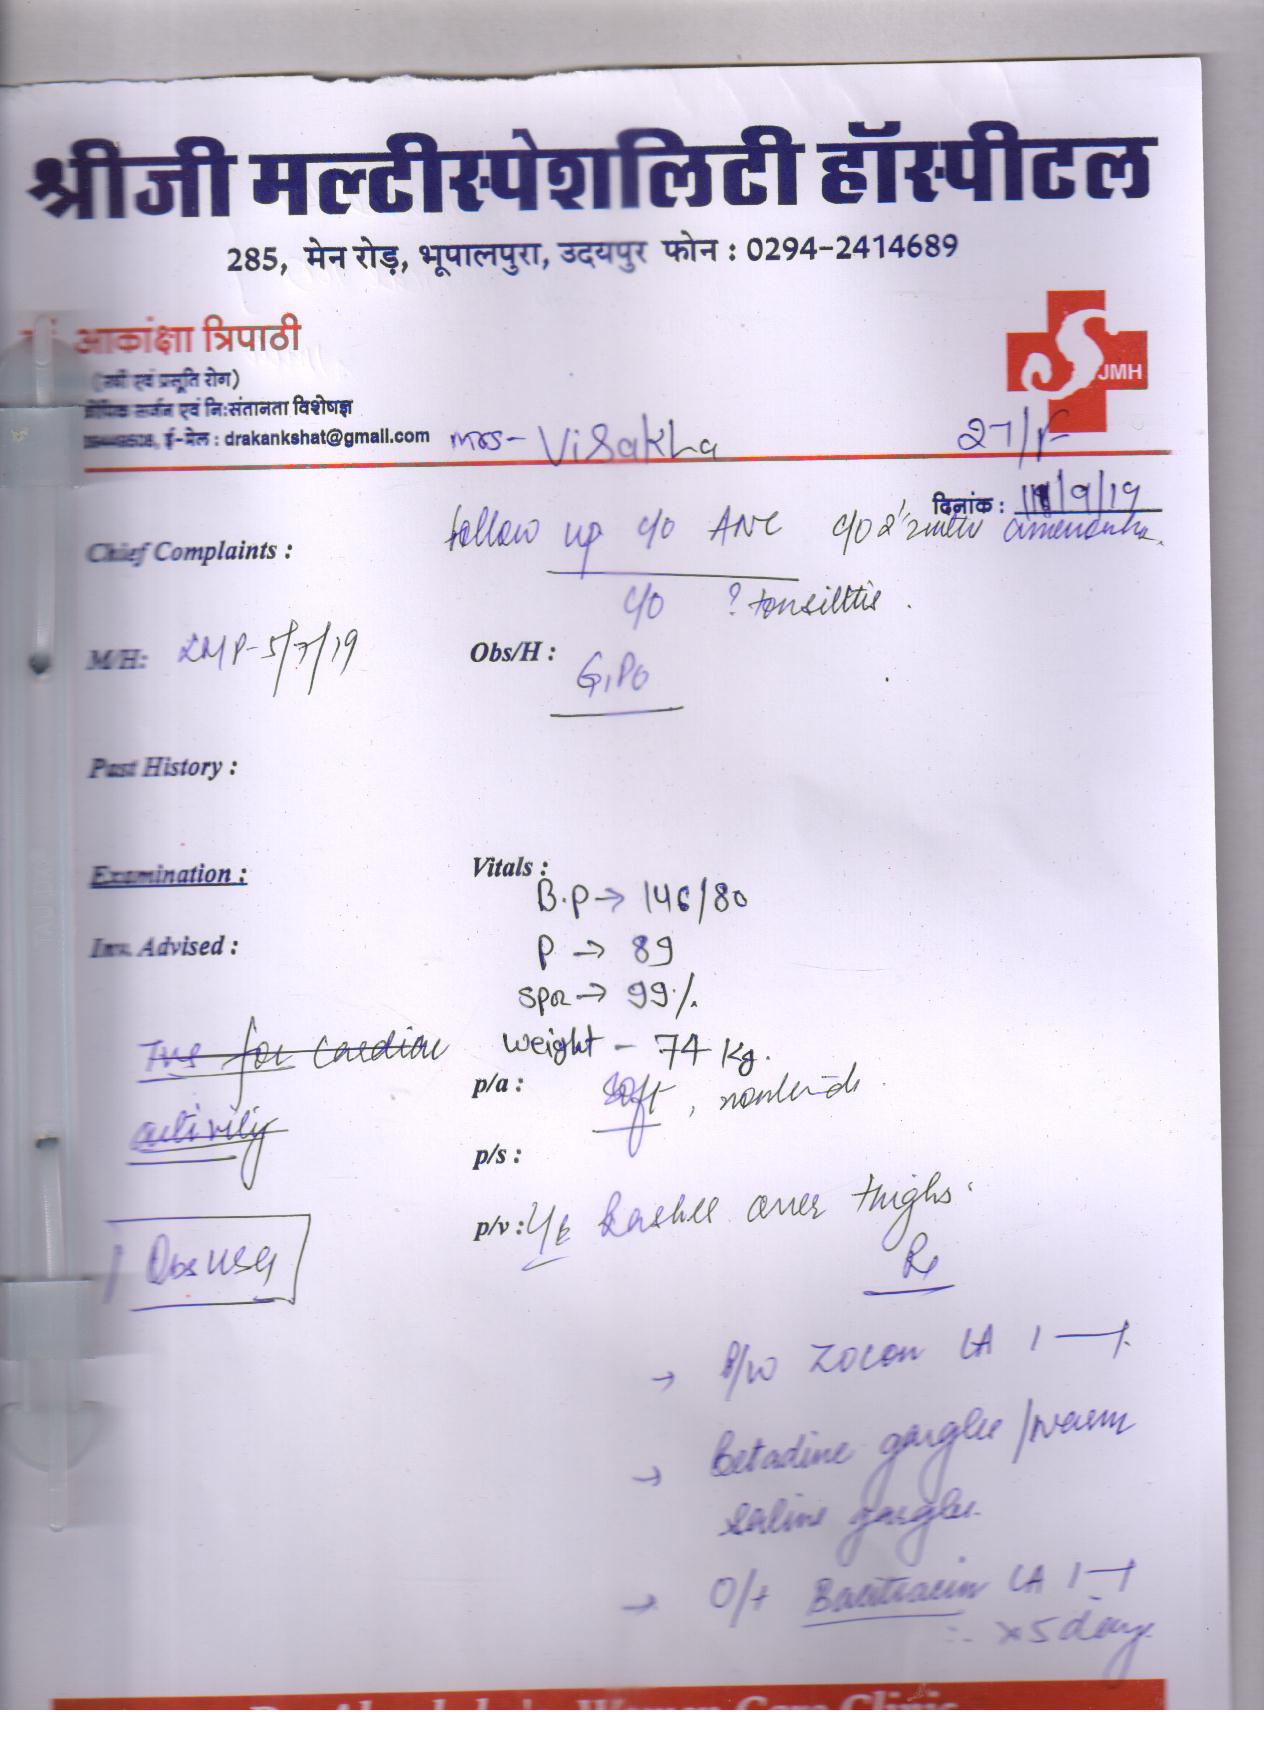 श्रीजी मल्टीस्पेशलिटी हॉस्पीटल
285, मेन रोड़, भूपालपुरा, उदयपुर फोन : 0294-2414689
आकांक्षा त्रिपाठी
(स्त्री एवं प्रसूति रोग)
सर्जन एवं नि:संतानता विशेषज्ञ
ई-मेल : drakankshat@gmail.com
Mrs- Visakha
27/F
SJMH
दिनांक : 11/9/19
Chief Complaints :
follow up c/o ANC c/o 2 amenorrhea.
c/o ? tonsillitis.
M/H: LMP-5/7/19
Obs/H :
G1P0
Past History :
Examination :
Vitals :
B.P → 146/80
Inv. Advised :
P → 89
SPO2 → 99%
TVS for cardiac
weight - 74 Kg.
activity
p/a : soft, nontender
p/s :
p/v : L/E Rashes over thighs.
Obs USG
Rx
→ P/w Zocon LA 1—1
→ Betadine gargles/warm
saline gargles.
→ O/t Bacitracin LA 1—1
x 5 days